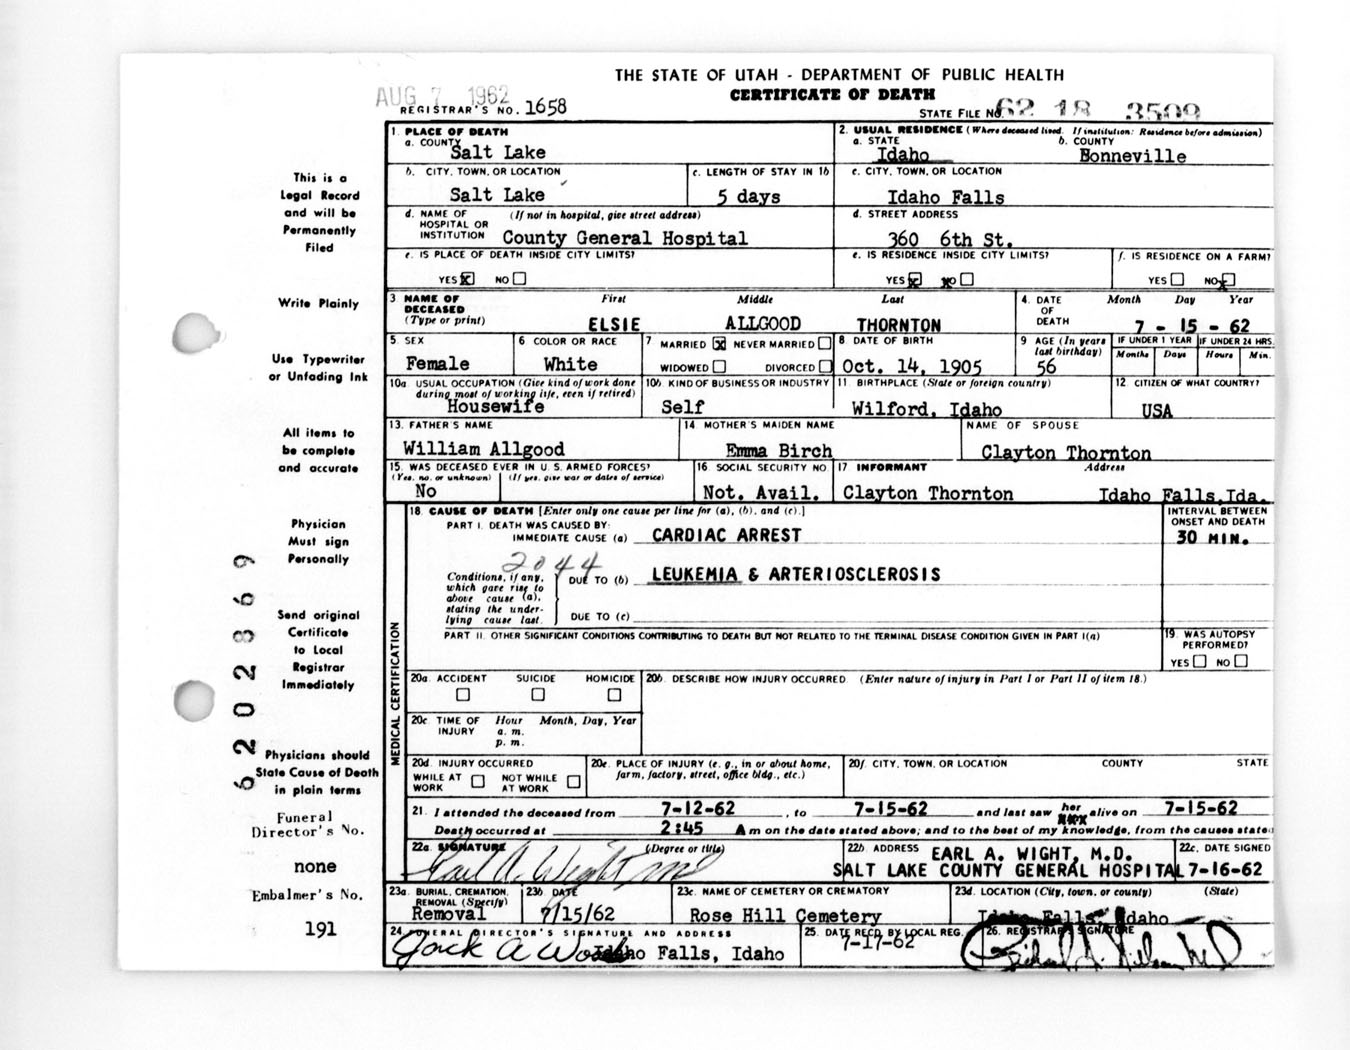 THE STATE OF UTAH - DEPARTMENT OF PUBLIC HEALTH
CERTIFICATE OF DEATH
AUG 7 1962
REGISTRAR'S NO. 1658
STATE FILE NO. 62 18 3509
This is a
Legal Record
and will be
Permanently
Filed
Write Plainly
Use Typewriter
or Unfading Ink
All items to
be complete
and accurate
Physician
Must sign
Personally
Send original
Certificate
to Local
Registrar
Immediately
Physicians should
State Cause of Death
in plain terms
Funeral
Director's No.
none
Embalmer's No.
191
620028 69
1. PLACE OF DEATH
a. COUNTY
Salt Lake
2. USUAL RESIDENCE (Where deceased lived. If institution: Residence before admission)
a. STATE b. COUNTY
Idaho Bonneville
b. CITY, TOWN, OR LOCATION
Salt Lake
c. LENGTH OF STAY IN 1b
5 days
c. CITY, TOWN, OR LOCATION
Idaho Falls
d. NAME OF (If not in hospital, give street address)
HOSPITAL OR
INSTITUTION County General Hospital
d. STREET ADDRESS
360 6th St.
e. IS PLACE OF DEATH INSIDE CITY LIMITS?
YES X NO
e. IS RESIDENCE INSIDE CITY LIMITS?
YES X NO
f. IS RESIDENCE ON A FARM?
YES NO X
3 NAME OF First Middle Last
DECEASED
(Type or print) ELSIE ALLGOOD THORNTON
4. DATE Month Day Year
OF
DEATH 7 - 15 - 62
5. SEX
Female
6 COLOR OR RACE
White
7 MARRIED X NEVER MARRIED
WIDOWED DIVORCED
8 DATE OF BIRTH
Oct. 14, 1905
9 AGE (In years
last birthday)
56
IF UNDER 1 YEAR IF UNDER 24 HRS.
Months Days Hours Min.
10a. USUAL OCCUPATION (Give kind of work done
during most of working life, even if retired)
Housewife
10b. KIND OF BUSINESS OR INDUSTRY
Self
11. BIRTHPLACE (State or foreign country)
Wilford, Idaho
12 CITIZEN OF WHAT COUNTRY?
USA
13. FATHER'S NAME
William Allgood
14 MOTHER'S MAIDEN NAME
Emma Birch
NAME OF SPOUSE
Clayton Thornton
15. WAS DECEASED EVER IN U.S. ARMED FORCES?
(Yes, no, or unknown) (If yes, give war or dates of service)
No
16. SOCIAL SECURITY NO.
Not. Avail.
17 INFORMANT Address
Clayton Thornton Idaho Falls,Ida.
MEDICAL CERTIFICATION
18. CAUSE OF DEATH [Enter only one cause per line for (a), (b), and (c).]
PART I. DEATH WAS CAUSED BY:
IMMEDIATE CAUSE (a) CARDIAC ARREST
INTERVAL BETWEEN
ONSET AND DEATH
30 MIN.
2044
Conditions, if any,
which gave rise to
above cause (a),
stating the under-
lying cause last.
DUE TO (b) LEUKEMIA & ARTERIOSCLEROSIS
DUE TO (c)
PART II. OTHER SIGNIFICANT CONDITIONS CONTRIBUTING TO DEATH BUT NOT RELATED TO THE TERMINAL DISEASE CONDITION GIVEN IN PART I(a)
19. WAS AUTOPSY
PERFORMED?
YES NO
20a. ACCIDENT SUICIDE HOMICIDE
20b. DESCRIBE HOW INJURY OCCURRED. (Enter nature of injury in Part I or Part II of item 18.)
20c. TIME OF Hour Month, Day, Year
INJURY a. m.
p. m.
20d. INJURY OCCURRED
WHILE AT NOT WHILE
WORK AT WORK
20e. PLACE OF INJURY (e. g., in or about home,
farm, factory, street, office bldg., etc.)
20f. CITY, TOWN, OR LOCATION COUNTY STATE
21. I attended the deceased from 7-12-62, to 7-15-62 and last saw her alive on 7-15-62
Death occurred at 2:45 A m on the date stated above; and to the best of my knowledge, from the causes stated
22a. SIGNATURE (Degree or title)
Earl A. Wight MD
22b ADDRESS EARL A. WIGHT, M.D.
SALT LAKE COUNTY GENERAL HOSPITAL
22c. DATE SIGNED
7-16-62
23a. BURIAL, CREMATION,
REMOVAL (Specify)
Removal
23b. DATE
7/15/62
23c. NAME OF CEMETERY OR CREMATORY
Rose Hill Cemetery
23d. LOCATION (City, town, or county) (State)
Idaho Falls, Idaho
24. FUNERAL DIRECTOR'S SIGNATURE AND ADDRESS
Jack A Wood Idaho Falls, Idaho
25. DATE RECD. BY LOCAL REG.
7-17-62
26. REGISTRAR'S SIGNATURE